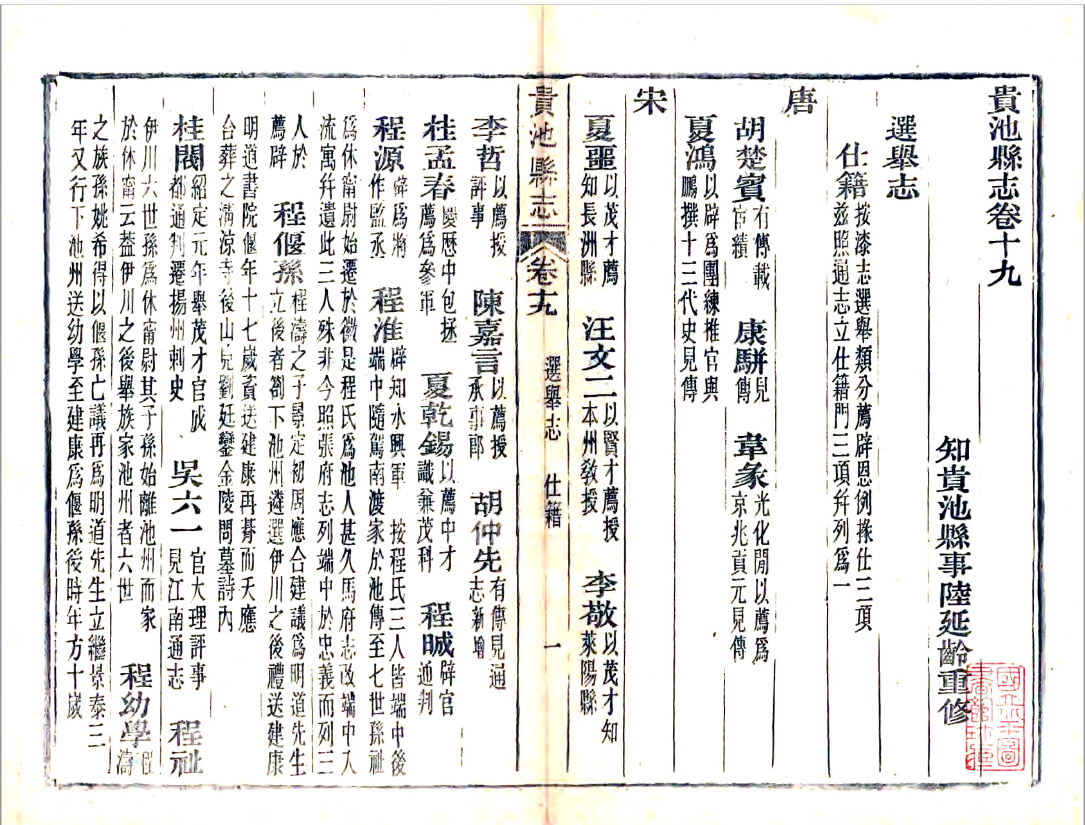 貴池縣志卷十九
知貴池縣事陸延齡重修
國立北平圖
書館珍藏
選舉志
仕籍 按漆志選舉類分薦辟恩例掾仕三項茲照通志立仕籍門三項幷列爲一
唐
胡楚賓 有傳載宦績 康駢 見傳 韋彖 光化閒以薦爲京兆貢元見傳
夏鴻 以辟爲團練推官與鵬撰十三代史見傳
宋
夏噩 以茂才薦知長洲縣 汪文二 以賢才薦授本州敎授 李敬 以茂才知萊陽縣
貴池縣志 卷十九 選舉志 仕籍 一
李哲 以薦授評事 陳嘉言 以薦授承事郎 胡仲先 有傳見通志新增
桂孟春 慶歷中包拯薦爲參軍 夏乾錫 以薦中才識兼茂科 程晠 辟官通判
程源 辟爲將作監丞 程淮 辟知永興軍 按程氏三人皆端中後端中隨駕南渡家於池傳至七世孫祉
爲休甯尉始遷於徽是程氏爲池人甚久馬府志改端中入流寓幷遺此三人殊非今照張府志列端中於忠義而列三
人於薦辟 程偃孫 程濤之子景定初周應合建議爲明道先生立後者劄下池州遴選伊川之後禮送建康
明道書院偃年十七歲資送建康再朞而夭應台葬之淸涼寺後山見劉廷鑾金陵問墓詩內
桂閥 紹定元年舉茂才官成都通判遷揚州刺史 吳六一 官大理評事見江南通志 程祉
伊川六世孫爲休甯尉其子孫始離池州而家於休甯云蓋伊川之後舉族家池州者六世 程幼學 程濤
之族孫姚希得以偃孫亡議再爲明道先生立繼景泰三年又行下池州送幼學至建康爲偃孫後時年方十歲